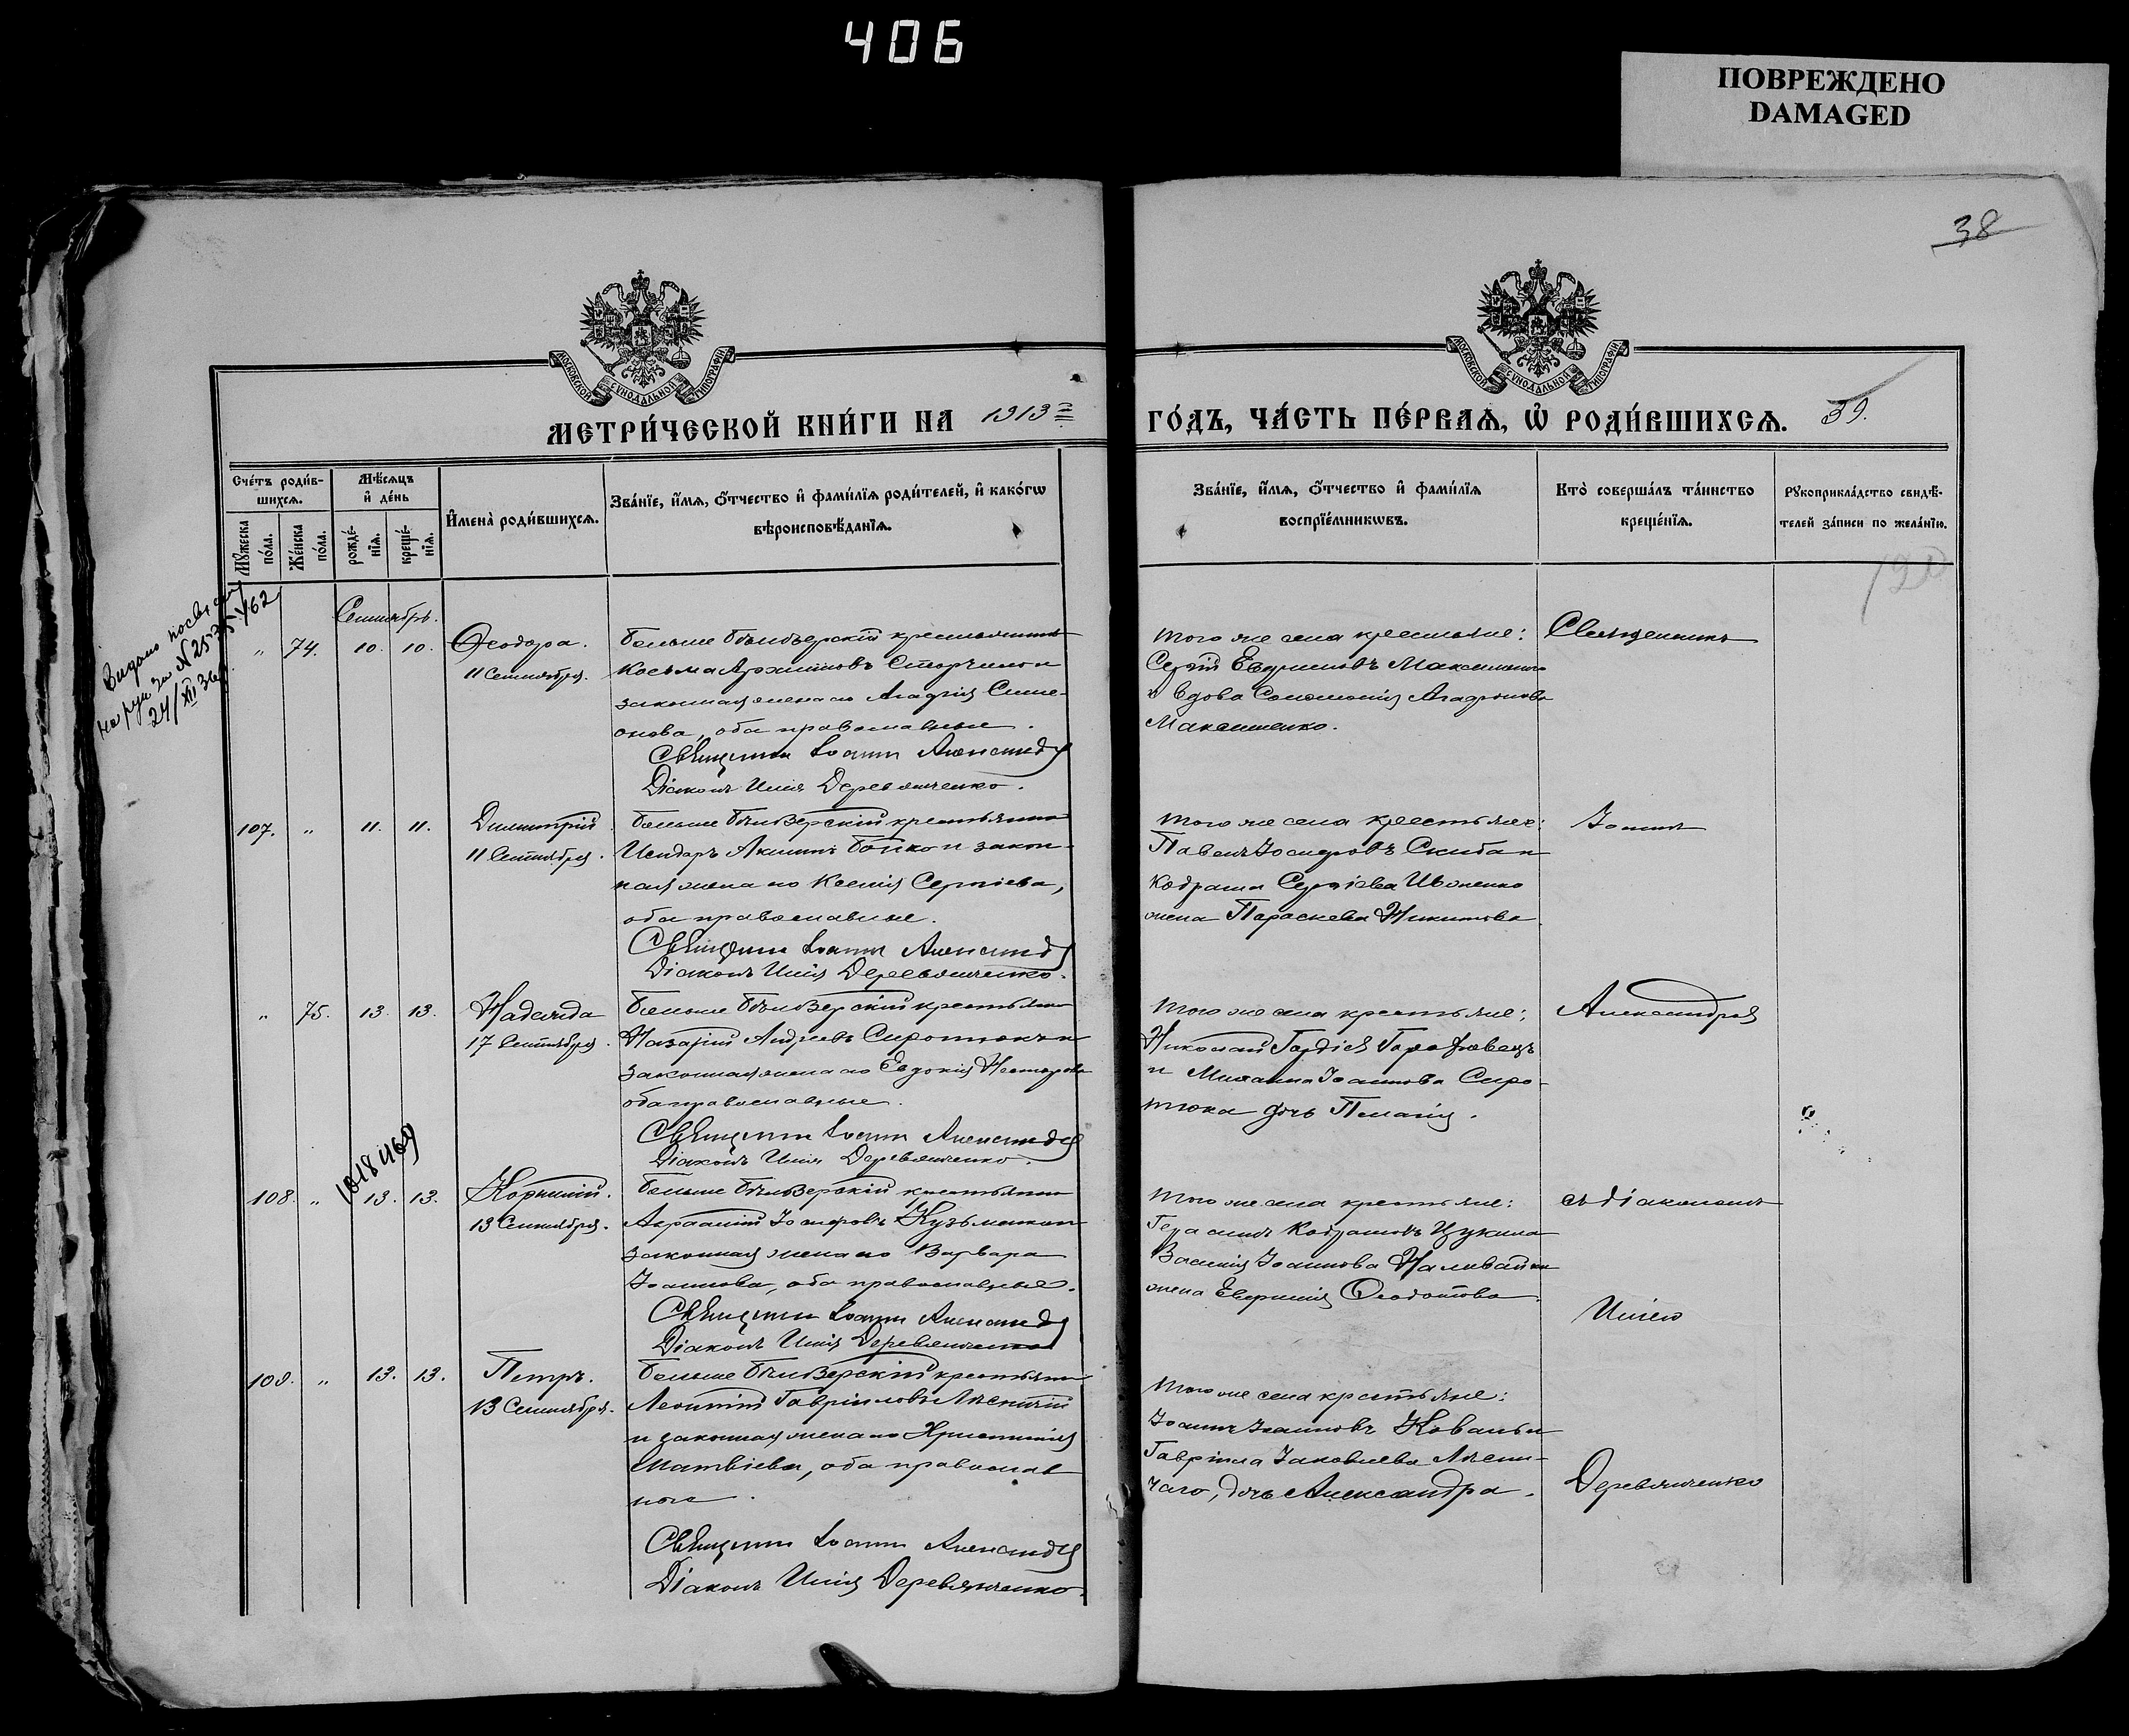 406
ПОВРЕЖДЕНО
DAMAGED
38
МОСКОВСКОЙ СУНОДАЛЬНОЙ ТИПОГРАФІИ
МОСКОВСКОЙ СУНОДАЛЬНОЙ ТИПОГРАФІИ
МЕТРИ́ЧЕСКОЙ КНИ́ГИ НА 1913 г
ГО́ДЪ, ЧА́СТЬ ПЕ́РВАѦ, Ѡ҆ РОДИ́ВШИХСѦ. 39.
Сче́тъ роди́в-
шихсѧ.
Мꙋжеска по́ла.
Же́нска по́ла.
Мѣ́сѧцъ
и҆ де́нь
рожде́-
нїѧ.
креще́-
нїѧ.
И҆мена̀ роди́вшихсѧ.
Зва́нїе, и҆́мѧ, ѻ҆́тчество и҆ фами́лїѧ роди́телей, и҆ како́гѡ
вѣроисповѣ́данїѧ.
Зва́нїе, и҆́мѧ, ѻ҆́тчество и҆ фами́лїѧ
воспрїе́мникѡвъ.
Кто̀ соверша́лъ та́инство
креще́нїѧ.
Рꙋкоприкла́дство свидѣ́-
телей за́писи по жела́нїю.
Видано посвид
на руки за №
24/XII 36
Сентябрь.
" 74. 10. 10. Ѳеодора.
11 Сентября.
Больше Бѣлозерскій крестьянинъ
Косьма Архиповъ
законная жена его Агафія Симе-
онова, оба православные.
Священникъ Іоаннъ Александр
Діаконъ Илія Деревянченко.
того же села крестьяне:
Сергій Евфимовъ Максименко
и вдова Соломонія Агафонова
Максименко.
Священникъ
107. " 11. 11. Димитрій
11 Сентября.
Больше Бѣлозерскій крестьянинъ
Исидоръ Бойко и закон-
ная жена его Ксенія Сергіева,
оба православные.
Священникъ Іоаннъ Александр
Діаконъ Илія Деревянченко.
того же села крестьяне:
Павелъ Іосифовъ Скиба и
Кодрата Сергіева Ивоненко
жена Параскева Никитова
Іоаннъ
" 75. 13. 13. Надежда
17 Сентября.
Больше Бѣлозерскій крестьянинъ
Назарій Андреевъ Сиротюкъ и
законная жена его Евдокія Несторова
оба православные.
Священникъ Іоаннъ Александр
Діаконъ Илія Деревянченко.
того же села крестьяне:
Николай Гордіевъ
и Михаила Іоаннова Сиро-
тюка дочь Пелагія.
Александр
1018469
108. " 13. 13. Корнилій.
13 Сентября.
Больше Бѣлозерскій крестьянинъ
Іосифовъ Кузьменко и
законная жена его Варвара
Іоаннова, оба православные.
Священникъ Іоаннъ Александр
Діаконъ Илія Деревянченко
того же села крестьяне:
Герасимъ Кодратовъ
Василія Іоаннова Наливайко
жена Евфимія Ѳеодотова
съ діакономъ
Иліею
109. " 13. 13. Петръ.
13 Сентября.
Больше Бѣлозерскій крестьянинъ
Леонтій Гавріиловъ
и законная жена его Христинія
Матвіева, оба православ
ные.
Священникъ Іоаннъ Александр
Діаконъ Илія Деревянченко.
того же села крестьяне:
Іоаннъ Іоанновъ Коваль и
Гавріила Іаковлева
чаго, дочь Александра.
Деревянченко